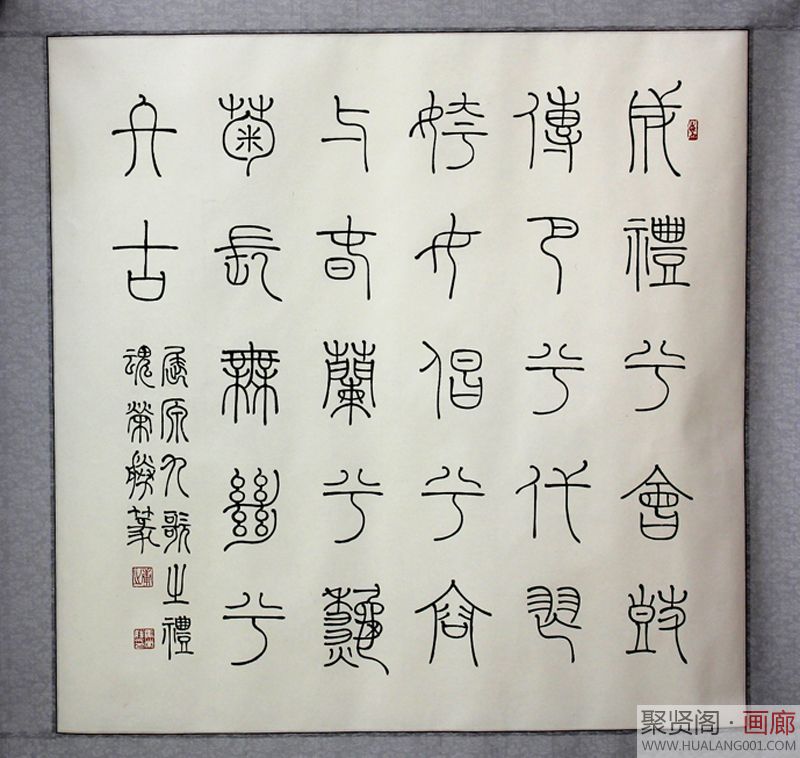 成禮兮會鼓
傳巴兮代舞
姱女倡兮容
与春蘭兮秋
菊長無絕兮
終古
屈原九歌之禮
魂榮勝篆
聚贤阁·画廊
WWW.HUALANG001.COM